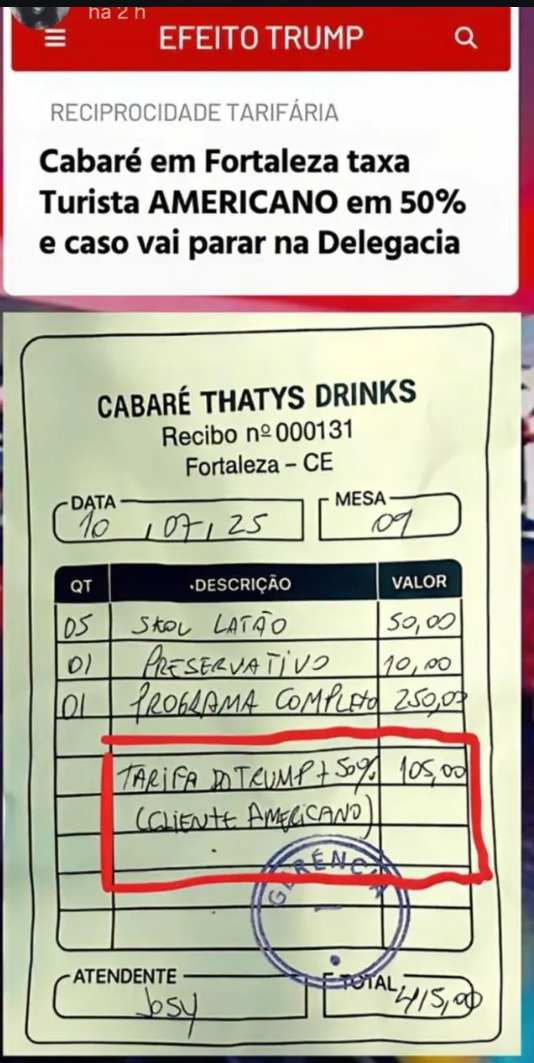 há 2 h
EFEITO TRUMP
RECIPROCIDADE TARIFÁRIA
Cabaré em Fortaleza taxa
Turista AMERICANO em 50%
e caso vai parar na Delegacia
CABARÉ THATYS DRINKS
Recibo nº 000131
Fortaleza – CE
DATA MESA
10 / 07 / 25 09
QT DESCRIÇÃO VALOR
05 SKOL LATÃO 50,00
01 PRESERVATIVO 10,00
01 PROGRAMA COMPLETO 250,00
TARIFA DO TRUMP + 50% 105,00
(CLIENTE AMERICANO)
GERÊNCIA
ATENDENTE TOTAL
Josy 415,00